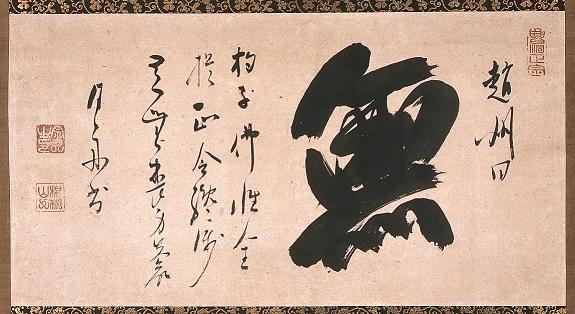 趙州曰
無
狗子佛性全
提正令纔渉
有無喪身失命
月舟書